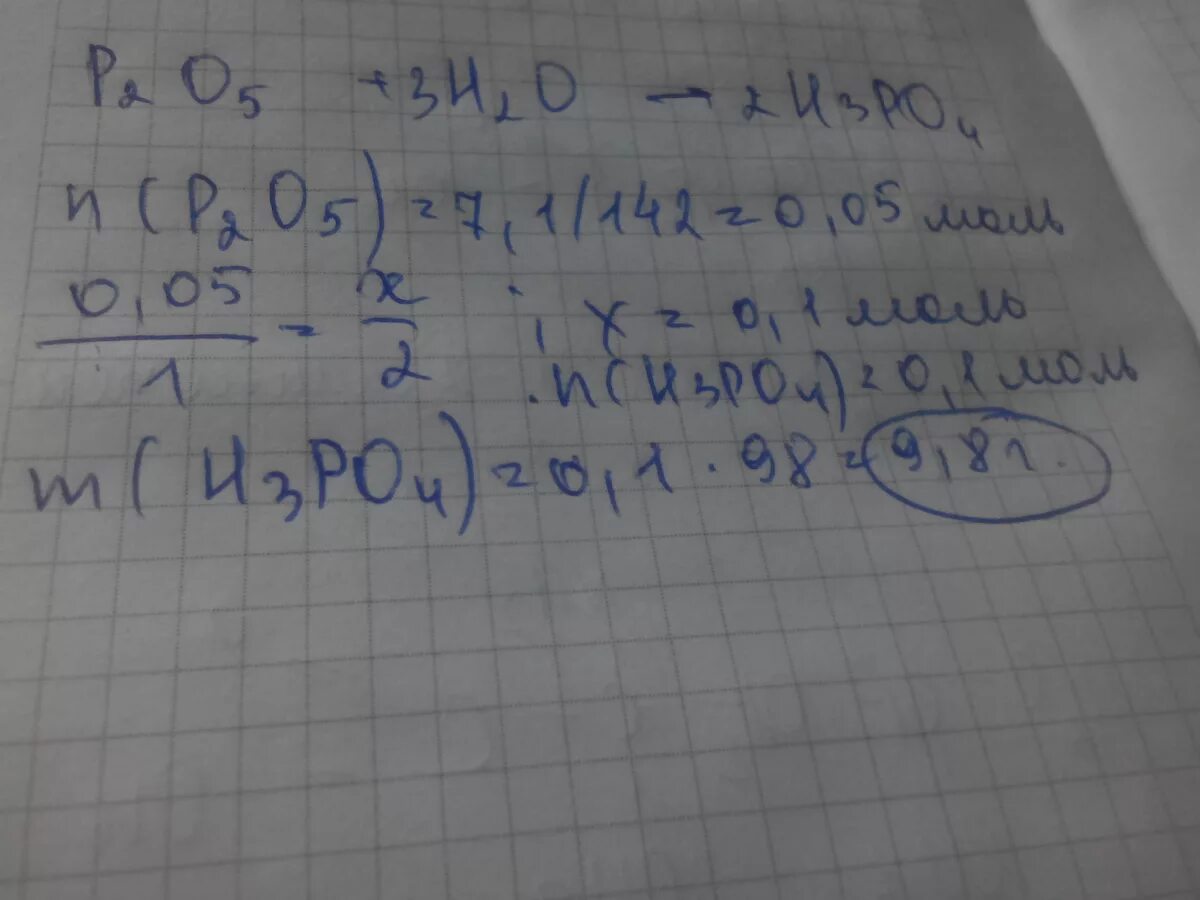 P₂O₅ + 3H₂O → 2H₃PO₄
n(P₂O₅) = 7,1/142 = 0,05 моль
0,05/1 = x/2 ; x = 0,1 моль
n(H₃PO₄) = 0,1 моль
m(H₃PO₄) = 0,1 · 98 = 9,8 г.